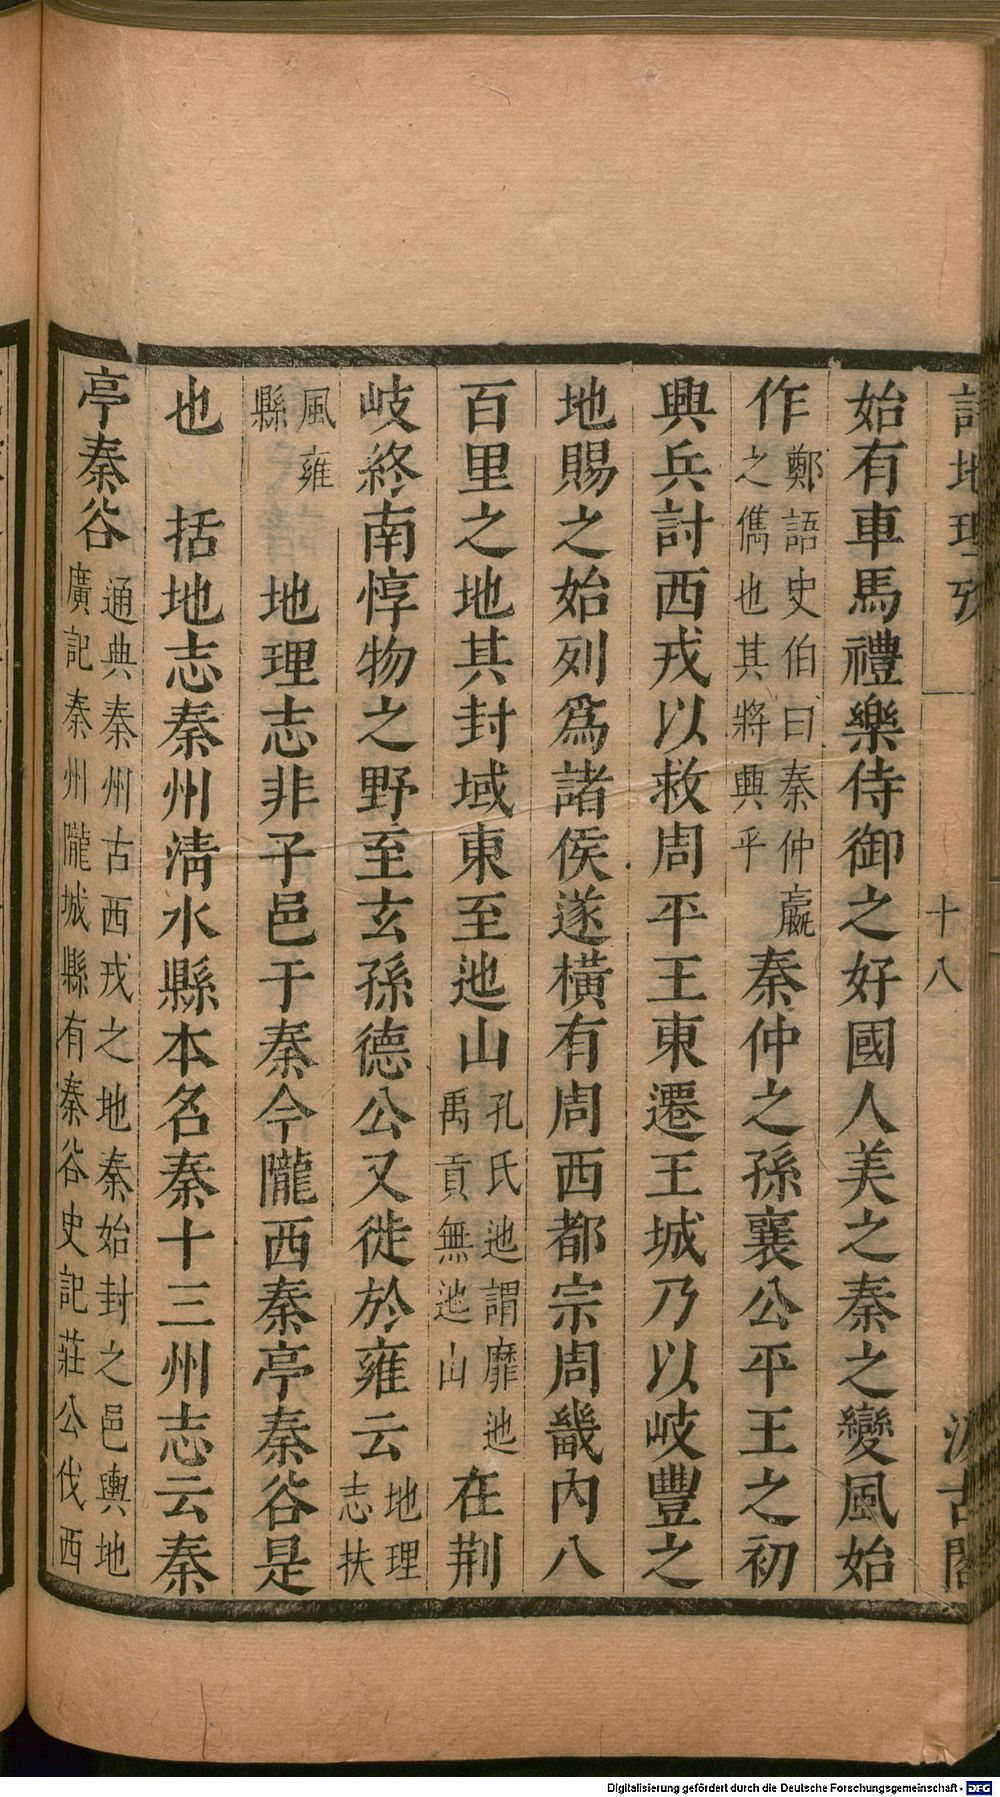 詩地理攷
十八
汲古閣
始有車馬禮樂侍御之好國人美之秦之變風始
作鄭語史伯曰秦仲嬴之儁也其將興乎秦仲之孫襄公平王之初
興兵討西戎以救周平王東遷王城乃以岐豐之
地賜之始列爲諸侯遂橫有周西都宗周畿內八
百里之地其封域東至迆山孔氏迆謂靡迆禹貢無迆山在荆
岐終南惇物之野至玄孫德公又徙於雍云地理志扶
風雍縣地理志非子邑于秦今隴西秦亭秦谷是
也 括地志秦州淸水縣本名秦十三州志云秦
亭秦谷通典秦州古西戎之地秦始封之邑輿地廣記秦州隴城縣有秦谷史記莊公伐西
Digitalisierung gefördert durch die Deutsche Forschungsgemeinschaft - DFG